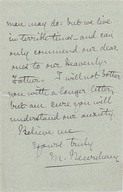 men may do: but we live
in terrible times — and can
only commend our dear
ones to our heavenly
Father. I will not bother
you with a longer letter,
but am sure you will
understand our anxiety.
Believe me
Yours truly
M.